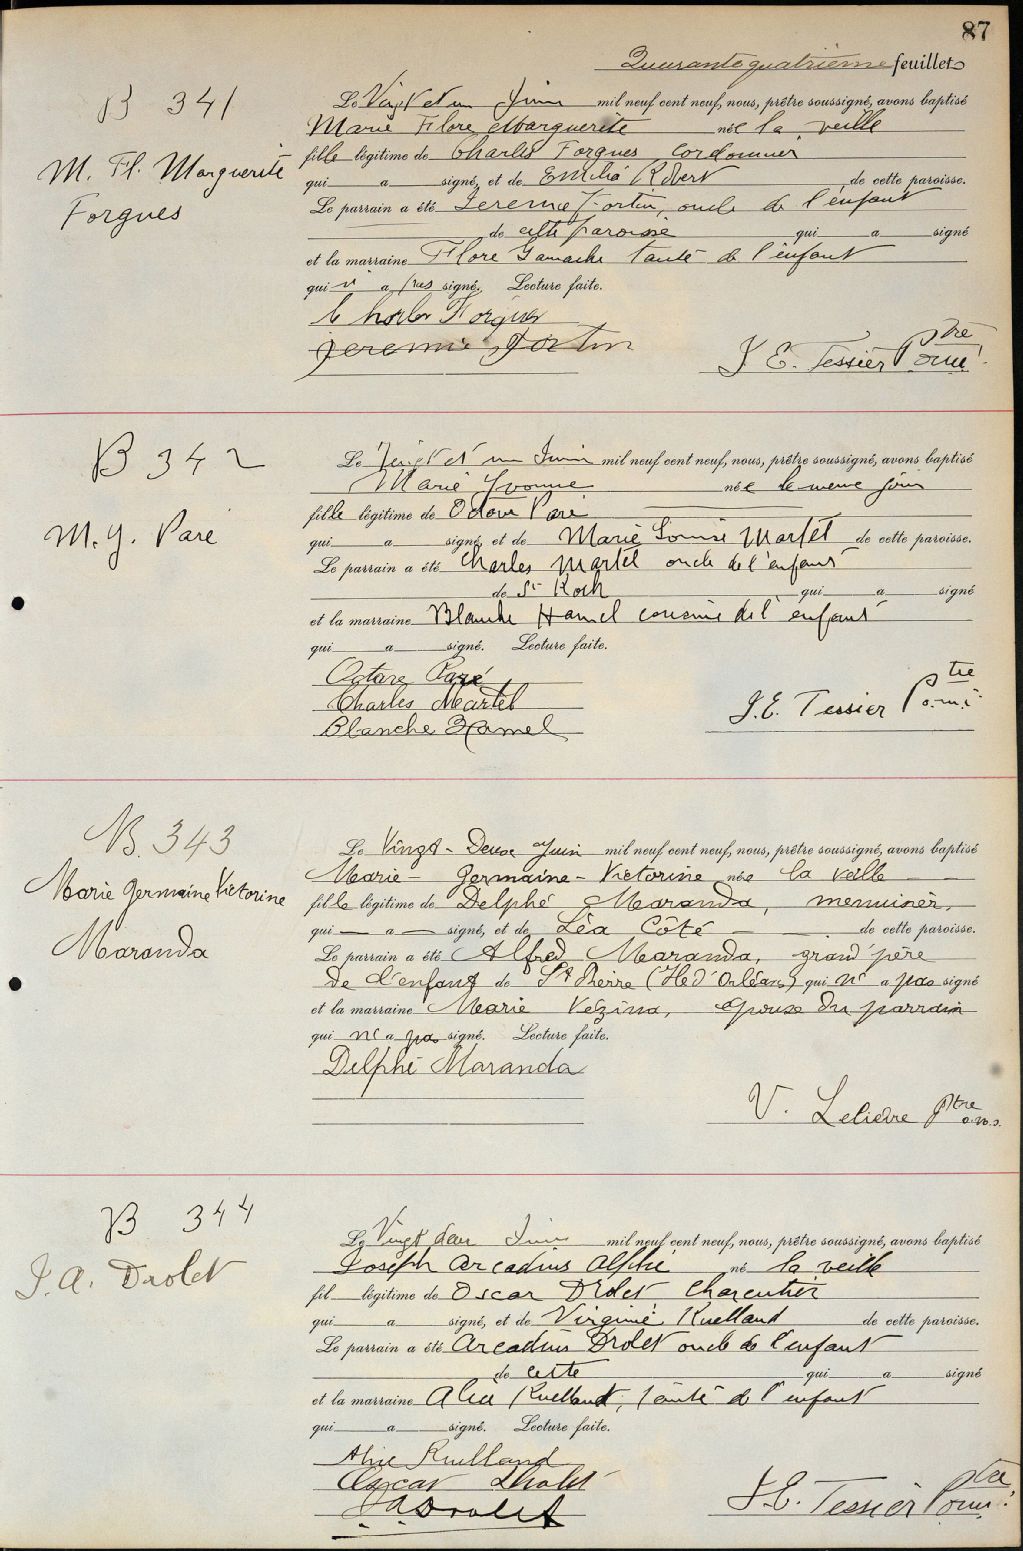 87
Quarante quatrième feuillet
B 341
M. Fl. Marguerite
Forgues
Le Vingt et un Juin mil neuf cent neuf, nous, prêtre soussigné, avons baptisé
Marie Flore Marguerite née la veille
fille légitime de Charles Forgues cordonnier
qui a signé, et de Emilia Robert de cette paroisse.
Le parrain a été Jeremie Fortin, oncle de l'enfant
de cette paroisse qui a signé
et la marraine Flore Gamache tante de l'enfant
qui n'a pas signé. Lecture faite.
Charles Forgues
Jeremie Fortin
J. E. Tessier Ptre
o.m.i.
B 342
M. Y. Paré
Le Vingt et un Juin mil neuf cent neuf, nous, prêtre soussigné, avons baptisé
Marie Yvonne née le meme jour
fille légitime de Octave Paré
qui a signé, et de Marie Louise Martel de cette paroisse.
Le parrain a été Charles Martel oncle de l'enfant
de St Roch qui a signé
et la marraine Blanche Hamel cousine de l'enfant
qui a signé. Lecture faite.
Octave Paré
Charles Martel
Blanche Hamel
J. E. Tessier Ptre
o.m.i.
B. 343
Marie Germaine Victorine
Maranda
Le Vingt-Deux Juin mil neuf cent neuf, nous, prêtre soussigné, avons baptisé
Marie-Germaine-Victorine née la veille
fille légitime de Delphé Maranda, menuisier,
qui — a — signé, et de Léa Côté de cette paroisse.
Le parrain a été Alfred Maranda, grand'père
de l'enfant de St Pierre (Ile d'Orléans) qui n'a pas signé
et la marraine Marie Vézina, épouse du parrain
qui n'a pas signé. Lecture faite.
Delphé Maranda
V. Lelièvre Ptre
o.m.i.
B 344
J. A. Drolet
Le Vingt deux Juin mil neuf cent neuf, nous, prêtre soussigné, avons baptisé
Joseph Arcadius Alphé né la veille
fil légitime de Oscar Drolet Charcutier
qui a signé, et de Virginie Ruelland de cette paroisse.
Le parrain a été Arcadius Drolet oncle de l'enfant
de cette qui a signé
et la marraine Alice Ruelland, tante de l'enfant
qui a signé. Lecture faite.
Alice Ruelland
Oscar Drolet
JADrolet
J. E. Tessier Ptre
o.m.i.